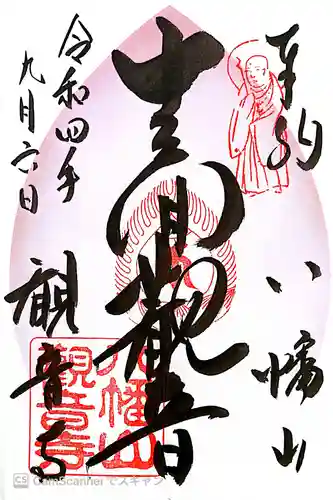 奉拝
八幡山
十一面観音
令和四年
九月六日
観音寺
八幡山
観音寺
CS CamScanner でスキャン